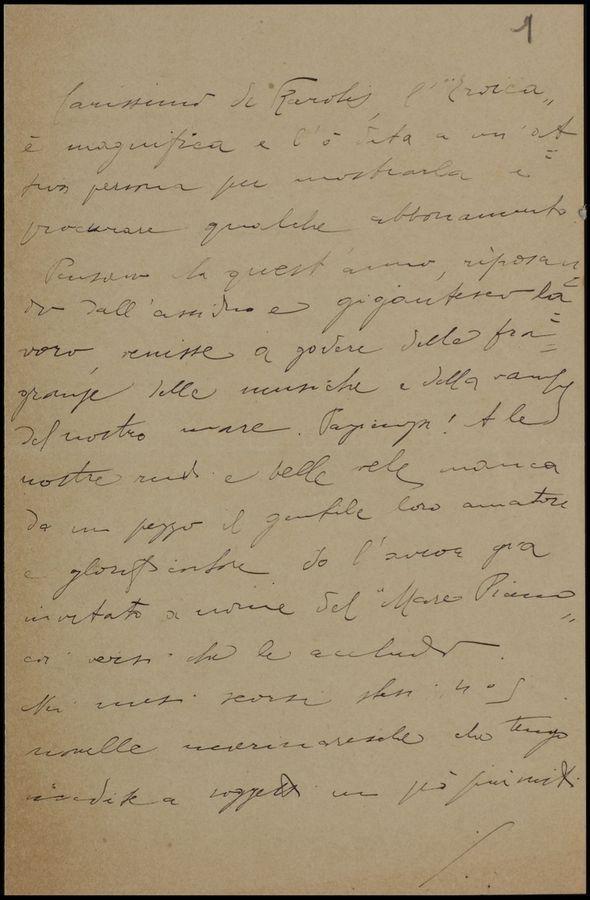 1
Carissimo de Karolis, l'"Eroica"
è magnifica e l'ò data a un'al=
tra persona per mostrarla e
procurare qualche abbonamento.
Pensavo che quest'anno, riposan=
do dall'assiduo e gigantesco la=
voro, venisse a godere della fra=
granze delle musiche e della
del nostro mare. Pazienza! Alle
nostre rudi e belle vele manca
da un pezzo il gentile loro amatore
e glorificatore. Io l'avevo già
invitato a nome del "Mare Piceno"
coi versi che le accludo.
Nei mesi scorsi stesi
novelle marinaresche che tengo
inedite a soggetti un pò